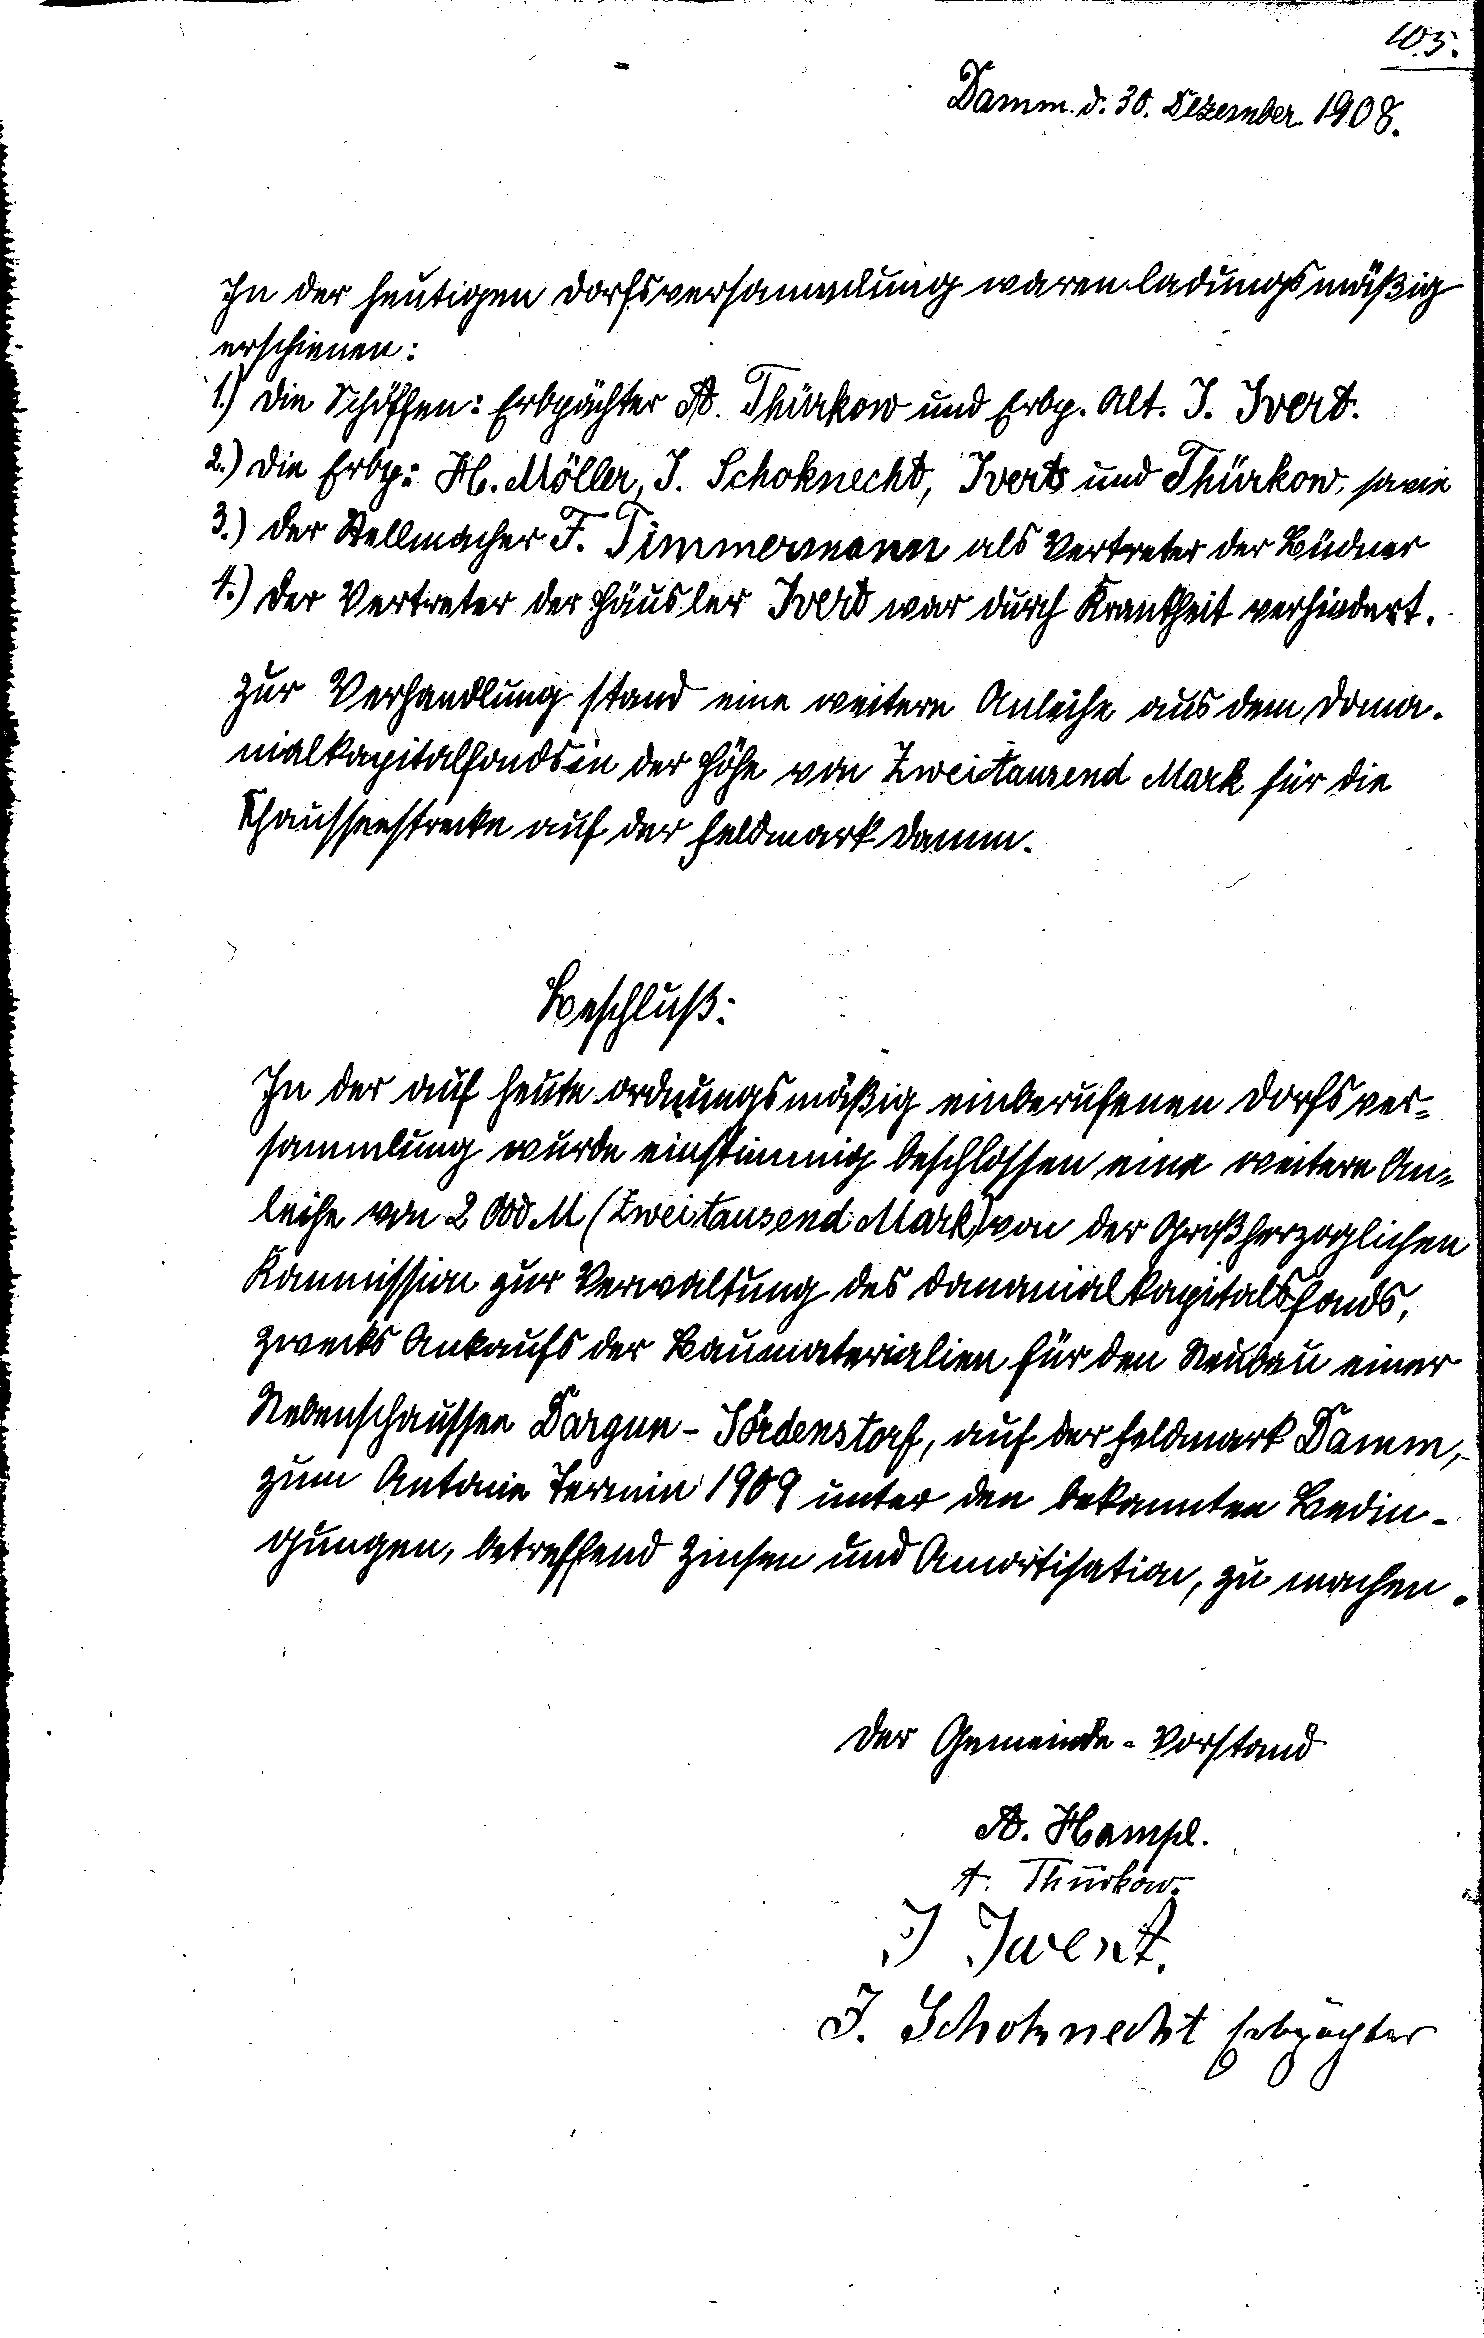 105.
Damm. d. 30. Dezember 1908.
In der heutigen Dorfsversammlung waren ladungsmäßig
erschienen:
1.) Die Schöffen: Erbpächter A. Thürkow und Erbp. Alt. J. Ivert.
2.) Die Erbp: H. Möller, J. Schoknecht, Iverts und Thürkow, sowie
3.) Der Stellmacher F. Timmermann als Vertreter der Büdner
4.) Der Vertreter der Häusler Ivert war durch Krankheit verhindert.
Zur Verhandlung stand eine weitere Anleihe aus dem Doma-
nialkapitalfonds in der Höhe von Zweitausend Mark für die
Chausseestrecke auf der Feldmark Damm.
Beschluß:
In der auf heute ordnungsmäßig einberufenen Dorfsver-
sammlung wurde einstimmig beschlossen eine weitere An-
leihe von 2000 M (Zweitausend Mark) von der Großherzoglichen
Kommission zur Verwaltung des Domanialkapitalsfonds,
zwecks Ankaufs der Baumaterialien für den Neubau einer
Nebenschaussee Dargun - Jördenstorf, auf der Feldmark Damm,
zum Antonie Termin 1909 unter den bekannten Bedin-
gungen, betreffend Zinsen und Amortisation, zu machen.
Der Gemeinde-Vorstand
A. Hampl.
A. Thürkow.
J Ivert.
J. Schoknecht Erbpächter